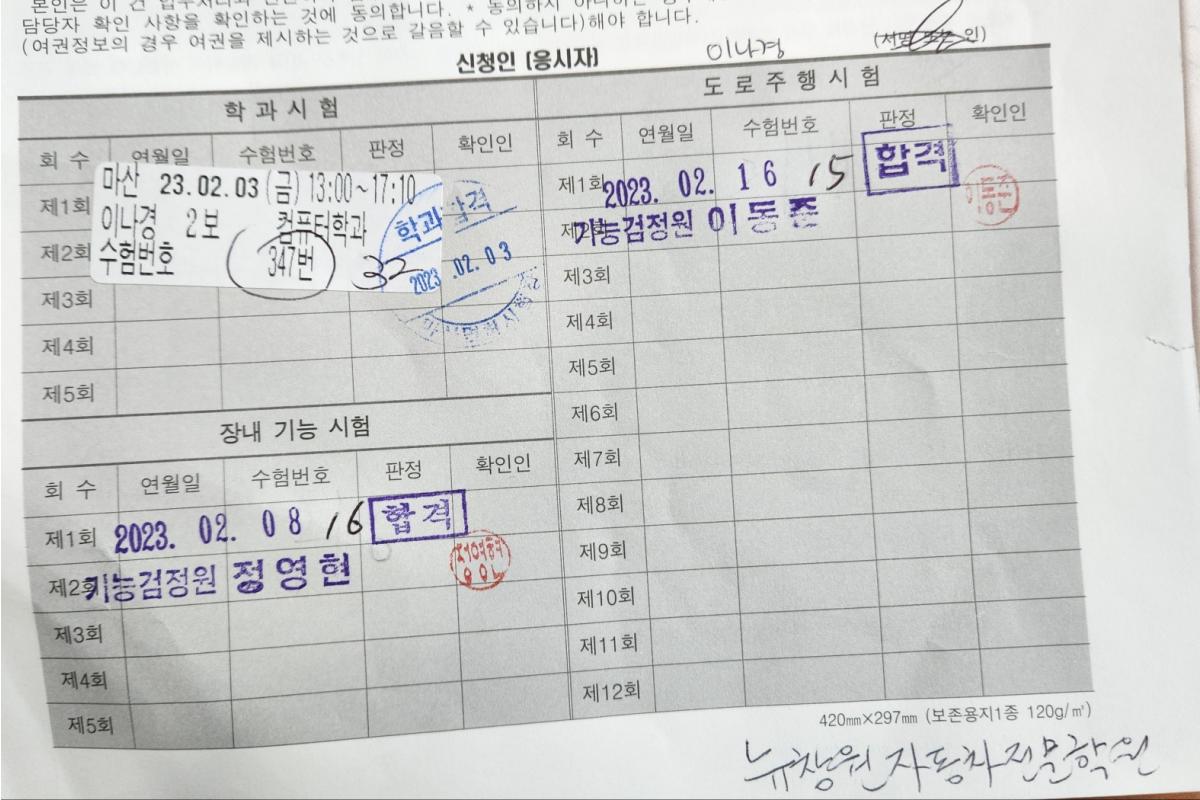 담당자 확인 사항을 확인하는 것에 동의합니다. * 동의하지
(여권정보의 경우 여권을 제시하는 것으로 갈음할 수 있습니다)해야 합니다.
신청인 (응시자) 이나경 (서명 또는 인)
학 과 시 험
회 수 연월일 수험번호 판정 확인인
제1회
제2회
제3회
제4회
제5회
마산 23.02.03(금) 13:00~17:10
이나경 2보 컴퓨터학과
수험번호 347번 32
학과합격
2023.02.03
장내 기능 시험
회 수 연월일 수험번호 판정 확인인
제1회 2023. 02. 08 16 합격
제2회 기능검정원 정영현
제3회
제4회
제5회
도 로 주 행 시 험
회 수 연월일 수험번호 판정 확인인
제1회 2023. 02. 16 15 합격
기능검정원 이동준
제3회
제4회
제5회
제6회
제7회
제8회
제9회
제10회
제11회
제12회
420㎜×297㎜ (보존용지1종 120g/㎡)
뉴창원자동차전문학원